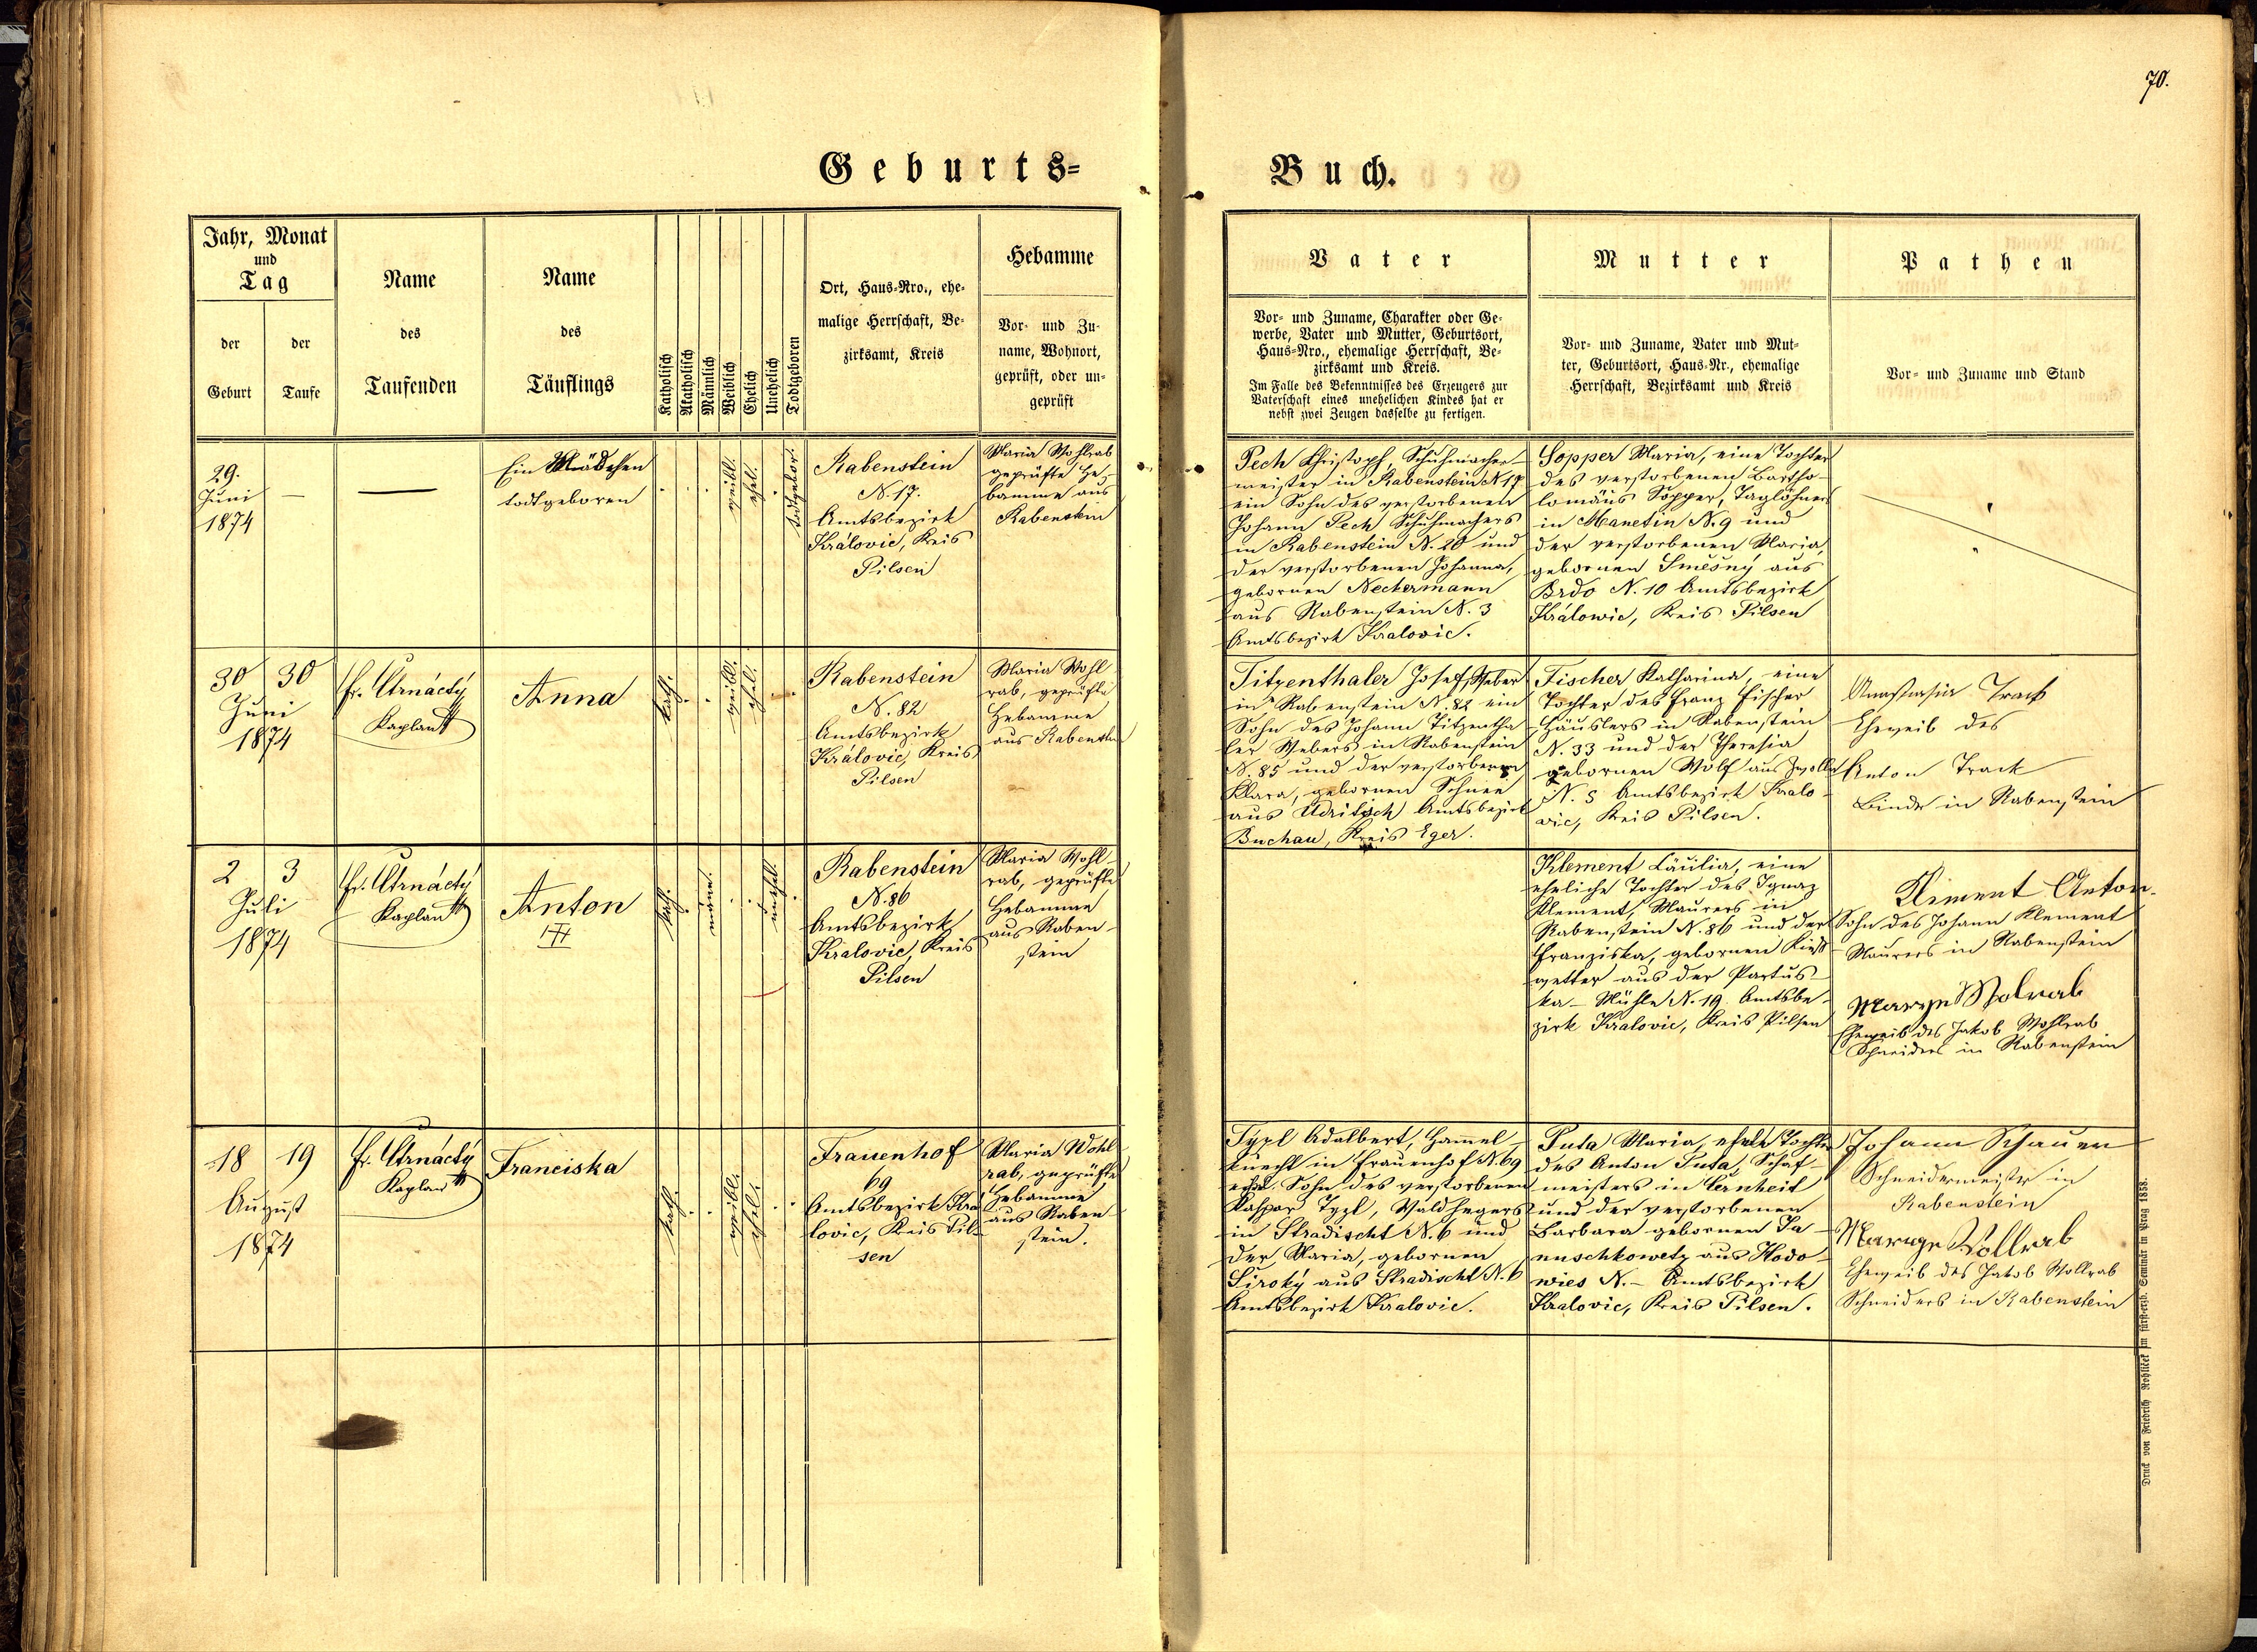 70.
Geburts-
Buch.
Jahr, Monat
und
Tag
der
Geburt
der
Taufe
Name
des
Taufenden
Name
des
Täuflings
Katholisch
Akatholisch
Männlich
Weiblich
Ehelich
Unehelich
Todtgeboren
Ort, Haus-Nro., ehe-
malige Herrschaft, Be-
zirksamt, Kreis
Hebamme
Vor- und Zu-
name, Wohnort,
geprüft, oder un-
geprüft
Vater
Vor- und Zuname, Charakter oder Ge-
werbe, Vater und Mutter, Geburtsort,
Haus-Nro., ehemalige Herrschaft, Be-
zirksamt und Kreis.
Im Falle des Bekenntnisses des Erzeugers zur
Vaterschaft eines unehelichen Kindes hat er
nebst zwei Zeugen dasselbe zu fertigen.
Mutter
Vor- und Zuname, Vater und Mut-
ter, Geburtsort, Haus-Nr., ehemalige
Herrschaft, Bezirksamt und Kreis
Pathen
Vor- und Zuname und Stand
29.
Juni
1874
Ein Mädchen
todtgeboren
weibl.
ehel.
todtgebor.
Rabenstein
N. 17.
Amtsbezirk
Královic, Kreis
Pilsen
Maria Wohlrab
geprüfte He-
bamme aus
Rabenstein
Pech Christoph, Schuhmacher-
meister in Rabenstein N. 17
ein Sohn des verstorbenen
Johann Pech Schuhmachers
in Rabenstein N. 20 und
der verstorbenen Johanna,
gebornen Neckermann
aus Rabenstein N. 3
Amtsbezirk Kralovic.
Sopper Maria, eine Tochter
des verstorbenen Bartho-
lomäus Sopper, Taglöhner
in Manetin N. 9 und
der verstorbenen Maria,
gebornen Směsný aus
Brdo N. 10 Amtsbezirk
Královic, Kreis Pilsen
30 30
Juni
1874
Fr. Ctrnáctý
Kaplan
Anna
kath.
weibl.
ehel.
Rabenstein
N. 82
Amtsbezirk
Královic, Kreis
Pilsen
Maria Wohl
rab, geprüfte
Hebamme
aus Rabenstein
Titzenthaler Josef, Weber
in Rabenstein N. 82 ein
Sohn des Johann Titzentha
ler Webers in Rabenstein
N. 85 und der verstorbenen
Klara, gebornen Schnee
aus Udritsch Amtsbezirk
Buchau, Kreis Eger.
Fischer Katharina, eine
Tochter des Franz Fischer
Häuslers in Rabenstein
N. 33 und der Theresia
gebornen Wolf aus
N. 5 Amtsbezirk Kralo-
vic, Kreis Pilsen.
Anastasia Track
Eheweib des
Anton Track
Binder in Rabenstein
2 3
Juli
1874
Fr. Ctrnáctý
Kaplan
Anton
kath.
männ.
unehel.
Rabenstein
N. 86
Amtsbezirk
Kralovic, Kreis
Pilsen
Maria Wohl-
rab, geprüfte
Hebamme
aus Raben-
stein
Klement Cäcilia, eine
eheliche Tochter des Ignaz
Klement, Maurers in
Rabenstein N. 86 und der
Franziska, gebornen
aus der Partus-
ka-Mühle N. 19. Amtsbe-
zirk Kralovic, Kreis Pilsen
Kliment Anton
Sohn des Johann Klement
Maurers in Rabenstein
Wolrab
Eheweib des Jakob Wohlrab
Schneiders in Rabenstein
18 19
August
1874
Fr. Ctrnáctý
Kaplan
Franciska
kath.
weibl.
ehel.
Frauenhof
69
Amtsbezirk Kra
lovic, Kreis Pil-
sen
Maria Wohl
rab, geprüfte
Hebamme
aus Raben-
stein.
Typl Adalbert, Hammel-
knecht in Frauenhof N. 69
ehel. Sohn des verstorbenen
Kaspar Typl, Waldhegers
in Stradischt N. 6 und
der Maria, gebornen
Široký aus Stradischt N. 6
Amtsbezirk Kralovic.
Puta Maria, ehel. Tochter
des Anton Puta, Schaf-
meisters in
und der verstorbenen
Barbara gebornen Ja-
nuschkowetz aus Hodo-
wies N. – Amtsbezirk
Kralovic, Kreis Pilsen.
Johann Schauer
Schneidermeister in
Rabenstein
Wollrab
Eheweib des Jakob Wollrab
Schneiders in Rabenstein
Druck von Friedrich Rohliček im fürsterzb. Seminär in Prag 1858.